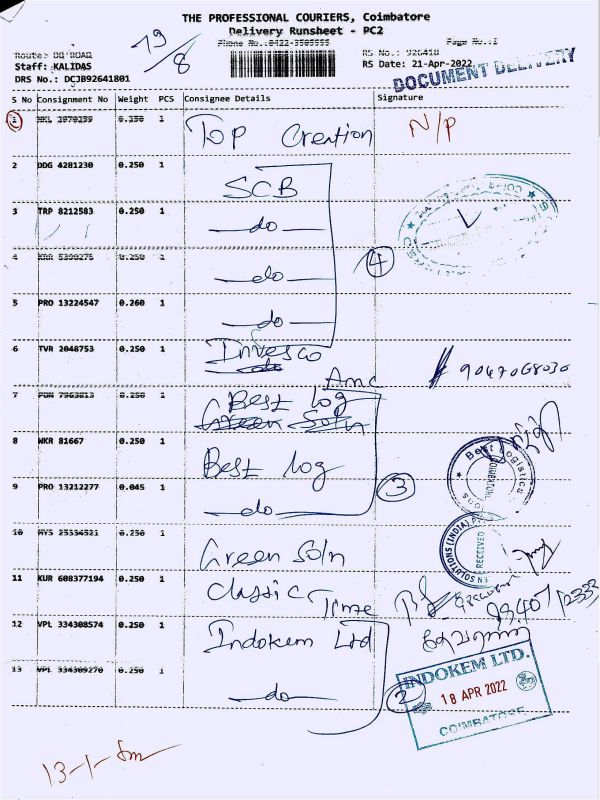 THE PROFESSIONAL COURIERS, Coimbatore
Delivery Runsheet - PC2
Phone No.:0422-3505555
Page No.:1
19/8
Staff: KALIDAS
RS Date: 21-Apr-2022
DRS No.: DCJB92641801
DOCUMENT DELIVERY
S No Consignment No Weight PCS Consignee Details Signature
1 0.350 1 Top Creation N/P
2 DDG 4281230 0.250 1 SCB
3 TRP 8212583 0.250 1 do
4 0.250 1 do
4
5 PRO 13224547 0.260 1 do
6 TVR 2048753 0.250 1
Amc
7 0.250 1 Best log
Green Soln
8 WKR 81667 0.250 1 Best log
Best Logistics
3
9 PRO 13212277 0.045 1 do
10 0.250 1 Green Soln
RECEIVED
11 KUR 608377194 0.250 1 Classic Time
12 VPL 334308574 0.250 1 Indokem Ltd
13 VPL 334309270 0.250 1 do
2
INDOKEM LTD.
18 APR 2022
COIMBATORE